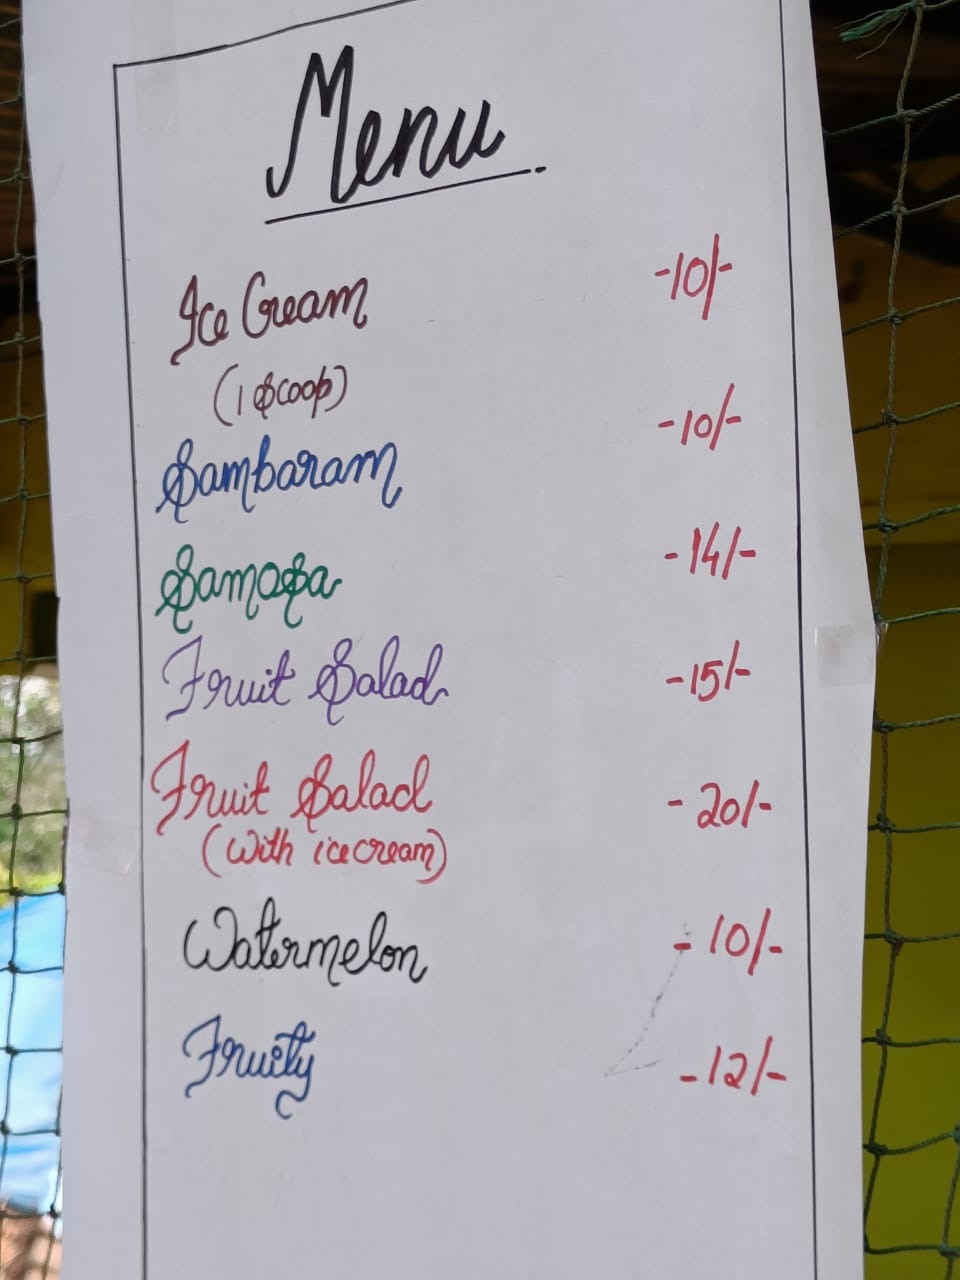 Menu
Ice Cream -10/-
(1 scoop)
Sambaram -10/-
Samosa -14/-
Fruit Salad -15/-
Fruit Salad -20/-
(With ice cream)
Watermelon -10/-
Fruity -12/-